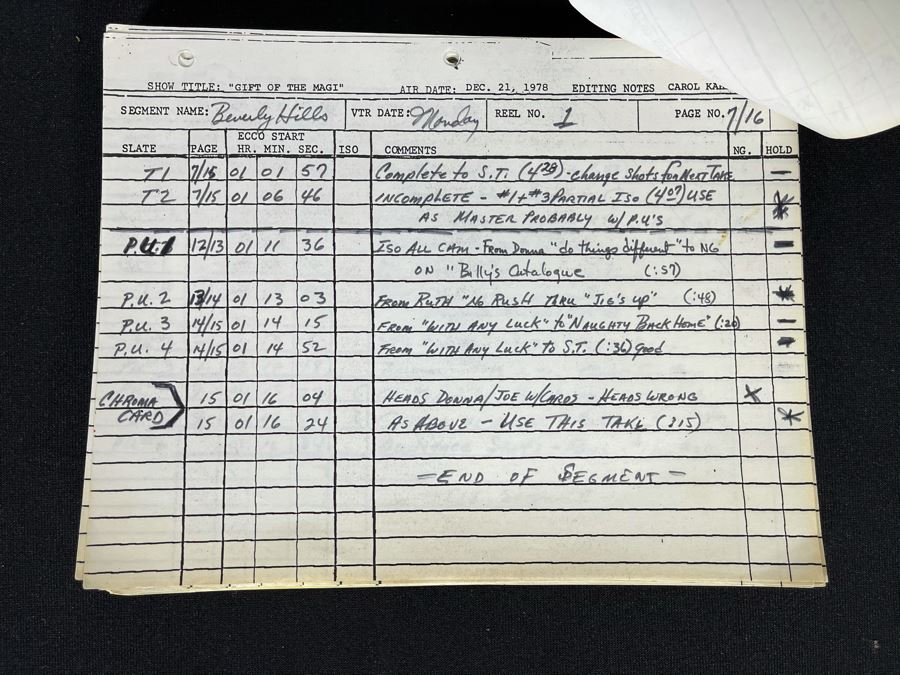 SHOW TITLE: "GIFT OF THE MAGI" AIR DATE: DEC. 21, 1978 EDITING NOTES CAROL
SEGMENT NAME: Beverly Hills VTR DATE: Monday REEL NO. 1 PAGE NO. 7/16
ECCO START
SLATE PAGE HR. MIN. SEC. ISO COMMENTS NG. HOLD
T1 7/15 01 01 57 Complete to S.T. (4:38) - change shots for Next Take —
T2 7/15 01 06 46 INCOMPLETE - #1 + #3 PARTIAL ISO (4:07) USE *
AS MASTER PROBABLY w/ P.U'S
P.U. 1 12/13 01 11 36 ISO ALL CAM - From Donna "do things different" to NG —
ON "Billy's Catalogue (:57)
P.U. 2 13/14 01 13 03 FROM RUTH "NO RUSH THRU "JIG'S UP" (:48) *
P.U. 3 14/15 01 14 15 FROM "WITH ANY LUCK" to "NAUGHTY BACK HOME" (:20) —
P.U. 4 14/15 01 14 52 From "WITH ANY LUCK" to S.T. (:36) good —
CHROMA
CARD 15 01 16 04 HEADS DONNA/JOE W/CARDS - HEADS WRONG X
15 01 16 24 AS ABOVE - USE THIS TAKE (:15) *
= END OF SEGMENT =